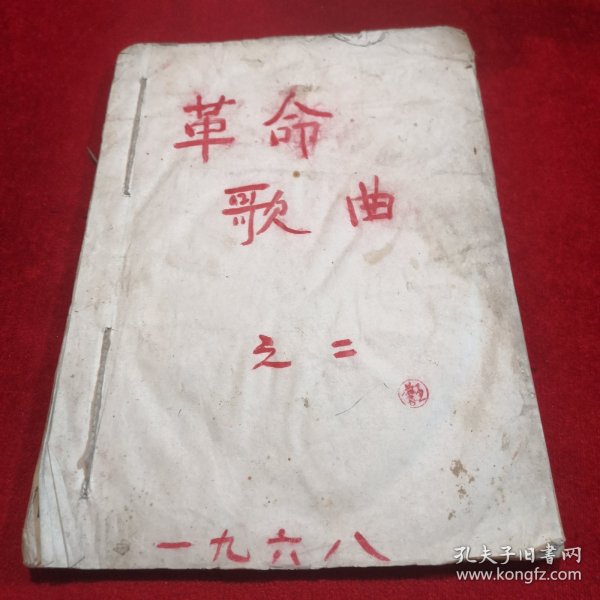 革命
歌曲
之二
一九六八
孔夫子旧書网
www.kongfz.com